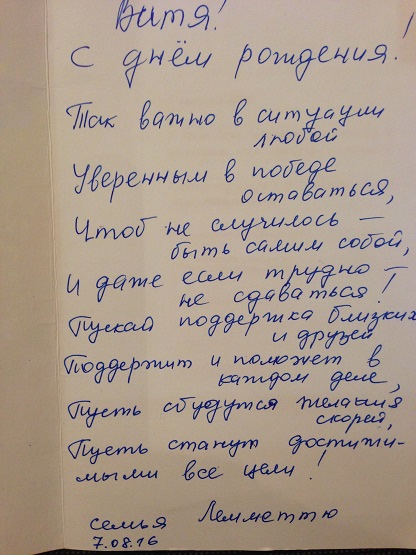 Витя!
С днём рождения!
Так важно в ситуации
любой
Уверенным в победе
оставаться,
Чтоб не случилось —
быть самим собой,
И даже если трудно —
не сдаваться!
Пускай поддержка близких
и друзей
Поддержит и поможет в
каждом деле,
Пусть сбудутся желания
скорей,
Пусть станут достижи-
мыми все цели!
семья Лемметтю
7.08.16